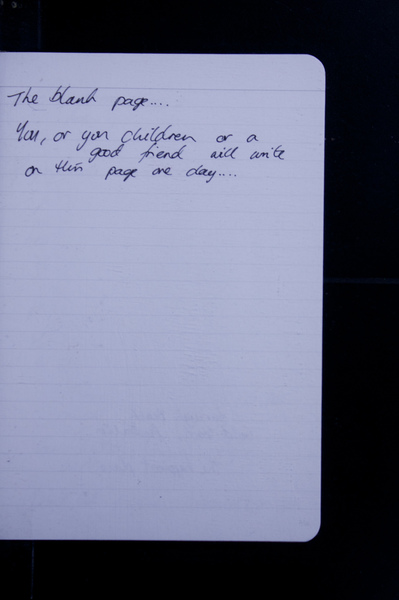 The blank page....
You, or your children or a
good friend will write
on this page one day....